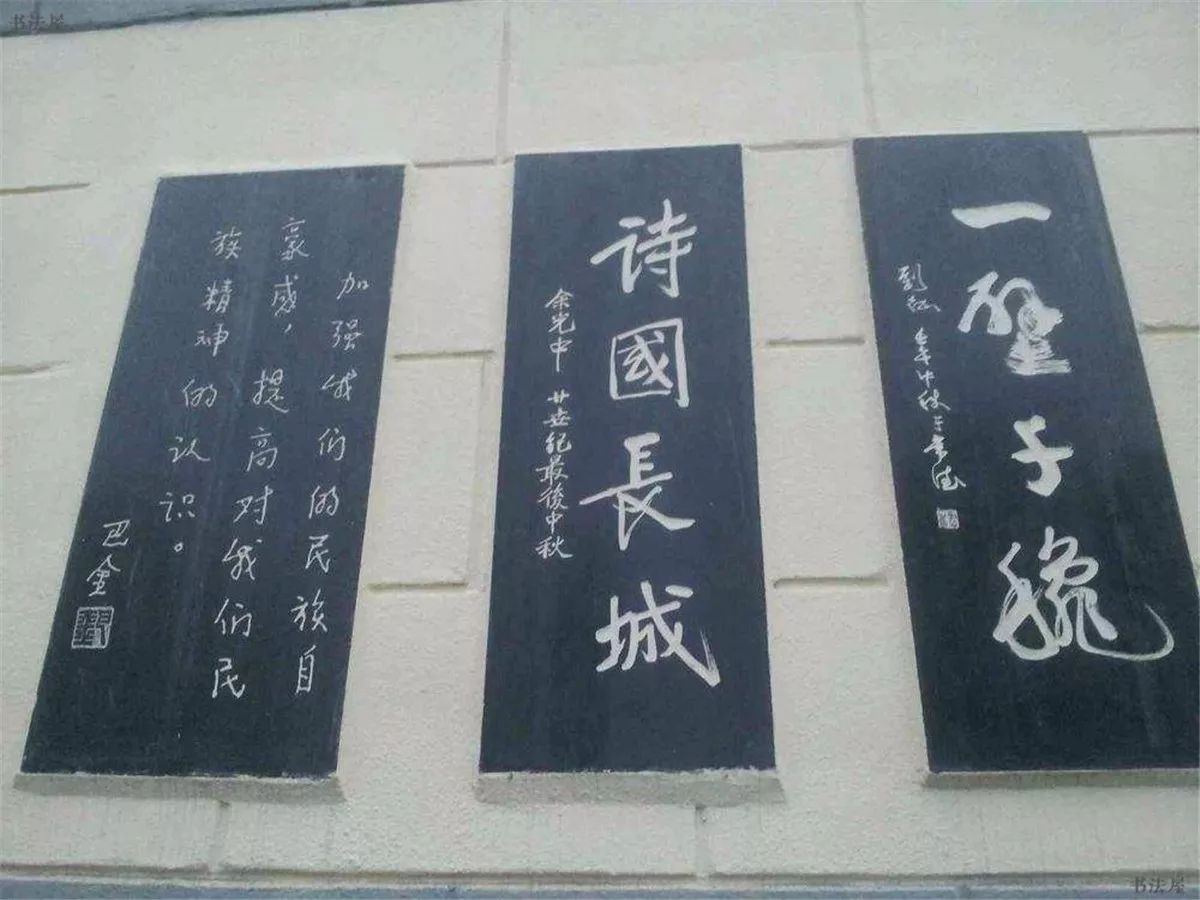 书法屋
一壁千穐
劉征
詩國長城
余光中 廿世紀最後中秋
加强我们的民族自
豪感，提高对我们民
族精神的认识。
巴金
书法屋